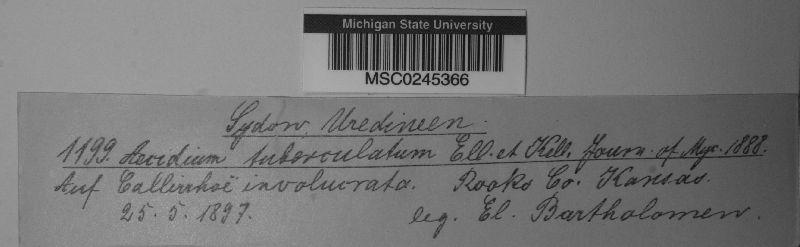 Michigan State University
MSC0245366
Sydow, Uredineen.
1199. Aecidium tuberculatum Ell. et Kell. Journ. of Myc. 1888.
Auf Callirrhoë involucrata. Rooks Co. Kansas.
25. 5. 1897. leg. El. Bartholomew.